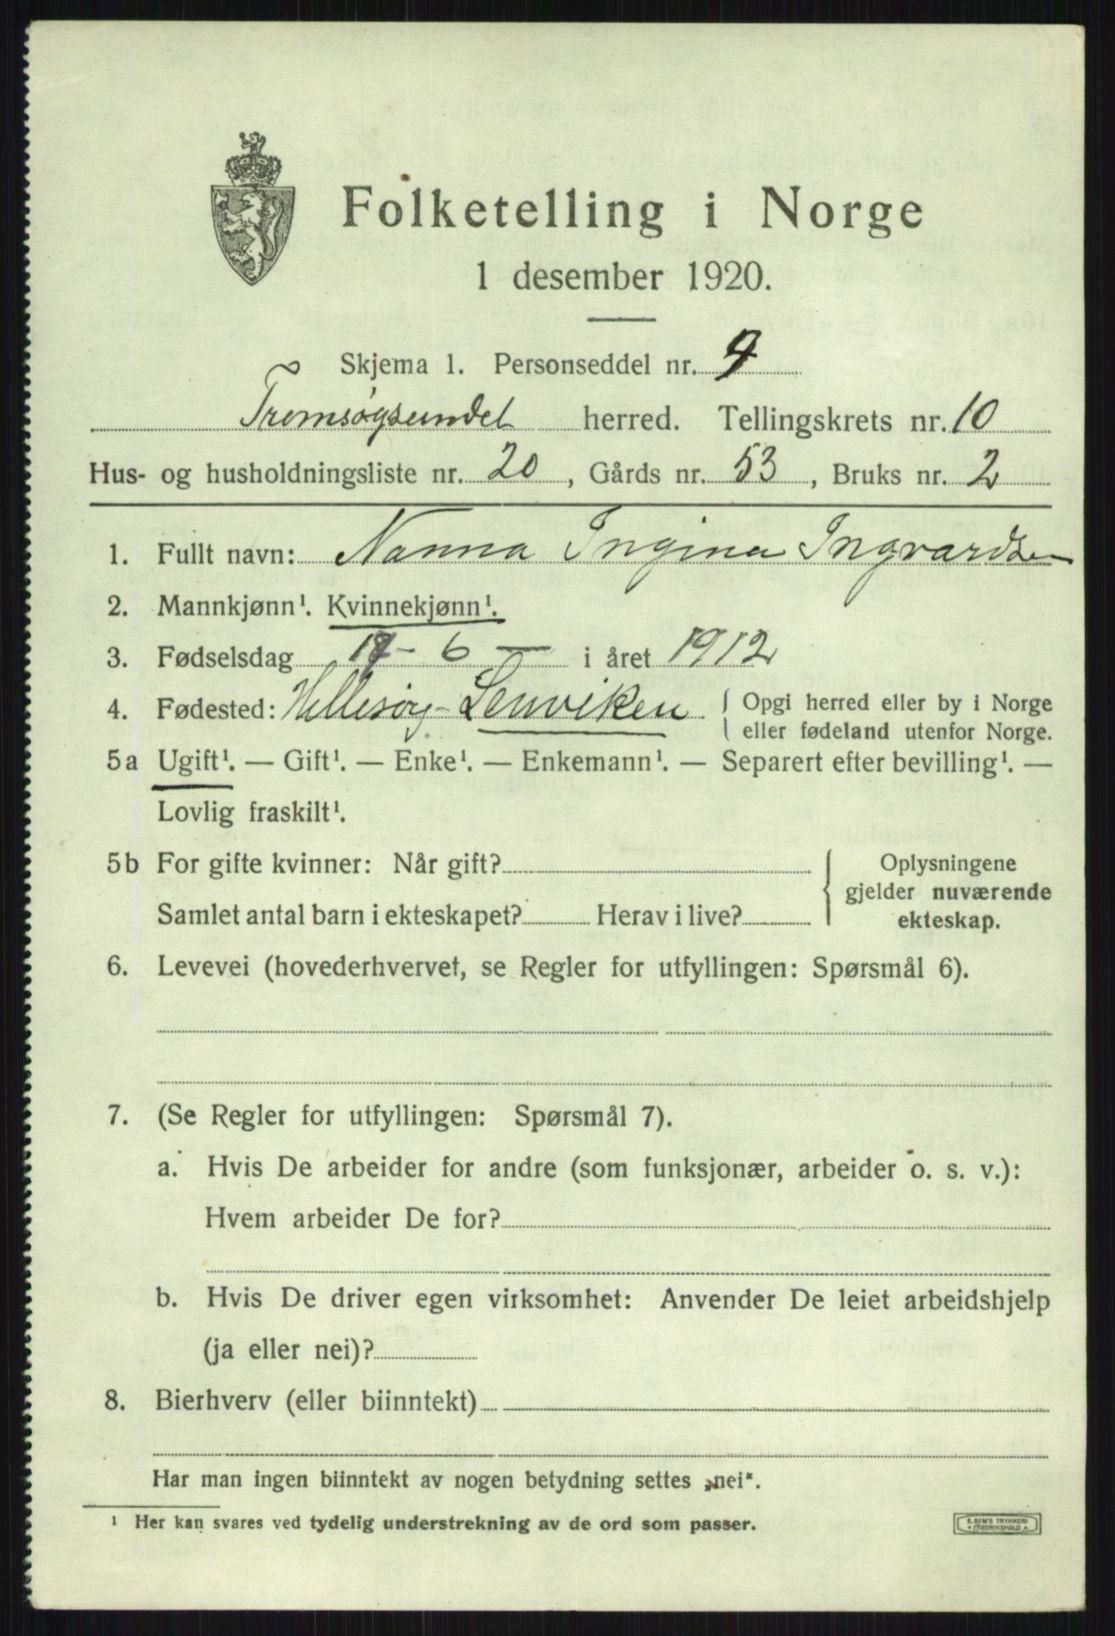 Folketelling i Norge
1 desember 1920.
Skjema 1. Personseddel nr. 9
Tromsøysundet herred. Tellingskrets nr. 10
Hus- og husholdningsliste nr. 20, Gårds nr. 53, Bruks nr. 2
1. Fullt navn: Nanna Ingina Ingvardsen
2. Mannkjønn¹. Kvinnekjønn¹.
3. Fødselsdag - 6 — i året 1912
4. Fødested: Hillesøy - Lenviken { Opgi herred eller by i Norge
eller fødeland utenfor Norge.
5a Ugift¹. — Gift¹. — Enke¹. — Enkemann¹. — Separert efter bevilling¹. —
Lovlig fraskilt¹.
5b For gifte kvinner: Når gift? { Oplysningene
gjelder nuværende
Samlet antal barn i ekteskapet? Herav i live? ekteskap.
6. Levevei (hovederhvervet, se Regler for utfyllingen: Spørsmål 6).
7. (Se Regler for utfyllingen: Spørsmål 7).
a. Hvis De arbeider for andre (som funksjonær, arbeider o. s. v.):
Hvem arbeider De for?
b. Hvis De driver egen virksomhet: Anvender De leiet arbeidshjelp
(ja eller nei)?
8. Bierhverv (eller biinntekt)
Har man ingen biinntekt av nogen betydning settes „nei".
¹ Her kan svares ved tydelig understrekning av de ord som passer.
E. SEM'S TRYKKERI
FREDRIKSHALD